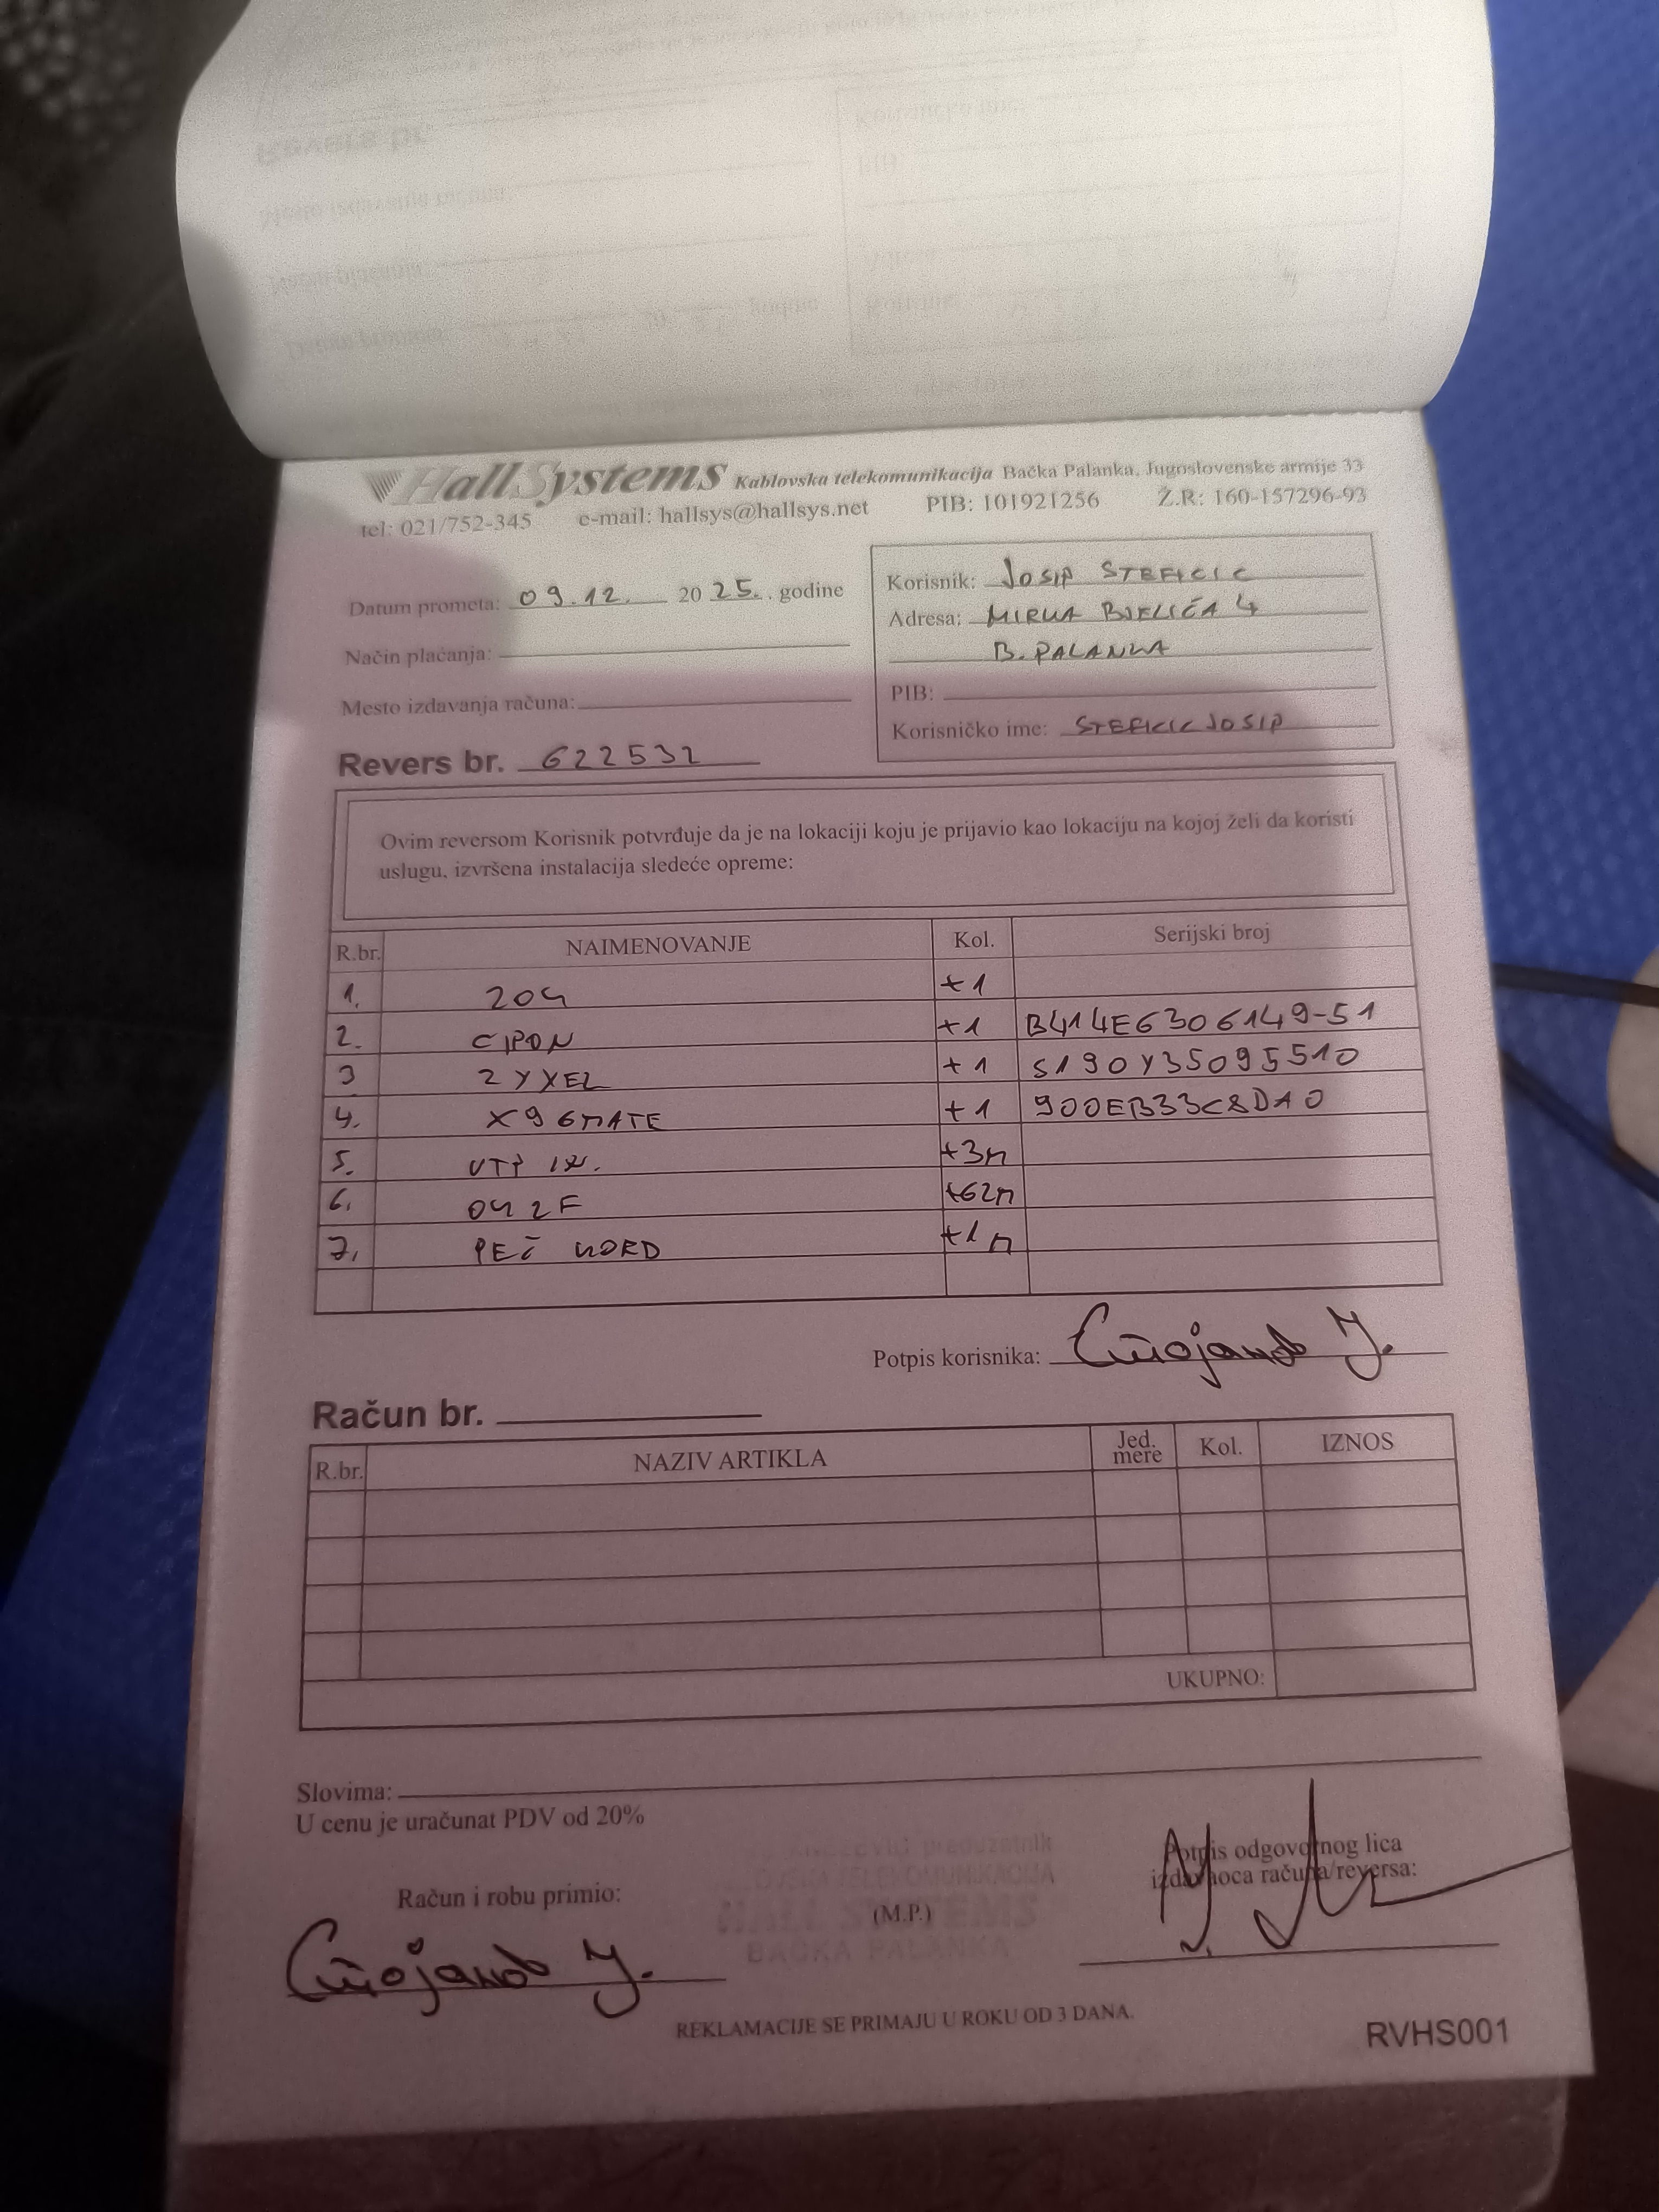 HallSystems Kablovska telekomunikacija Bačka Palanka, Jugoslovenske armije 33
tel: 021/752-345 e-mail: hallsys@hallsys.net PIB: 101921256 Ž.R: 160-157296-93
Datum prometa: 09.12. 20 25. . godine
Način plaćanja:
Mesto izdavanja računa:
Korisnik: JOSIP STEFICIC
Adresa: MIRKA BJELIĆA 4
B. PALANKA
PIB:
Korisničko ime: STEFICIC JOSIP
Revers br. 622532
Ovim reversom Korisnik potvrđuje da je na lokaciji koju je prijavio kao lokaciju na kojoj želi da koristi
uslugu, izvršena instalacija sledeće opreme:
R.br. NAIMENOVANJE Kol. Serijski broj
1. ZOG +1
2. CIPON +1 B414E6306149-51
3 ZYXEL +1 S190Y35095510
4. X96MATE +1 900EB33C8DA0
5. UTP +3m
6. 2F +62m
7. PEČ KORD +1m
Potpis korisnika:
Račun br.
R.br. NAZIV ARTIKLA Jed. mere Kol. IZNOS
UKUPNO:
Slovima:
U cenu je uračunat PDV od 20%
Račun i robu primio:
(M.P.)
HALL SYSTEMS
BAČKA PALANKA
Potpis odgovornog lica
izdavaoca računa/reversa:
REKLAMACIJE SE PRIMAJU U ROKU OD 3 DANA.
RVHS001